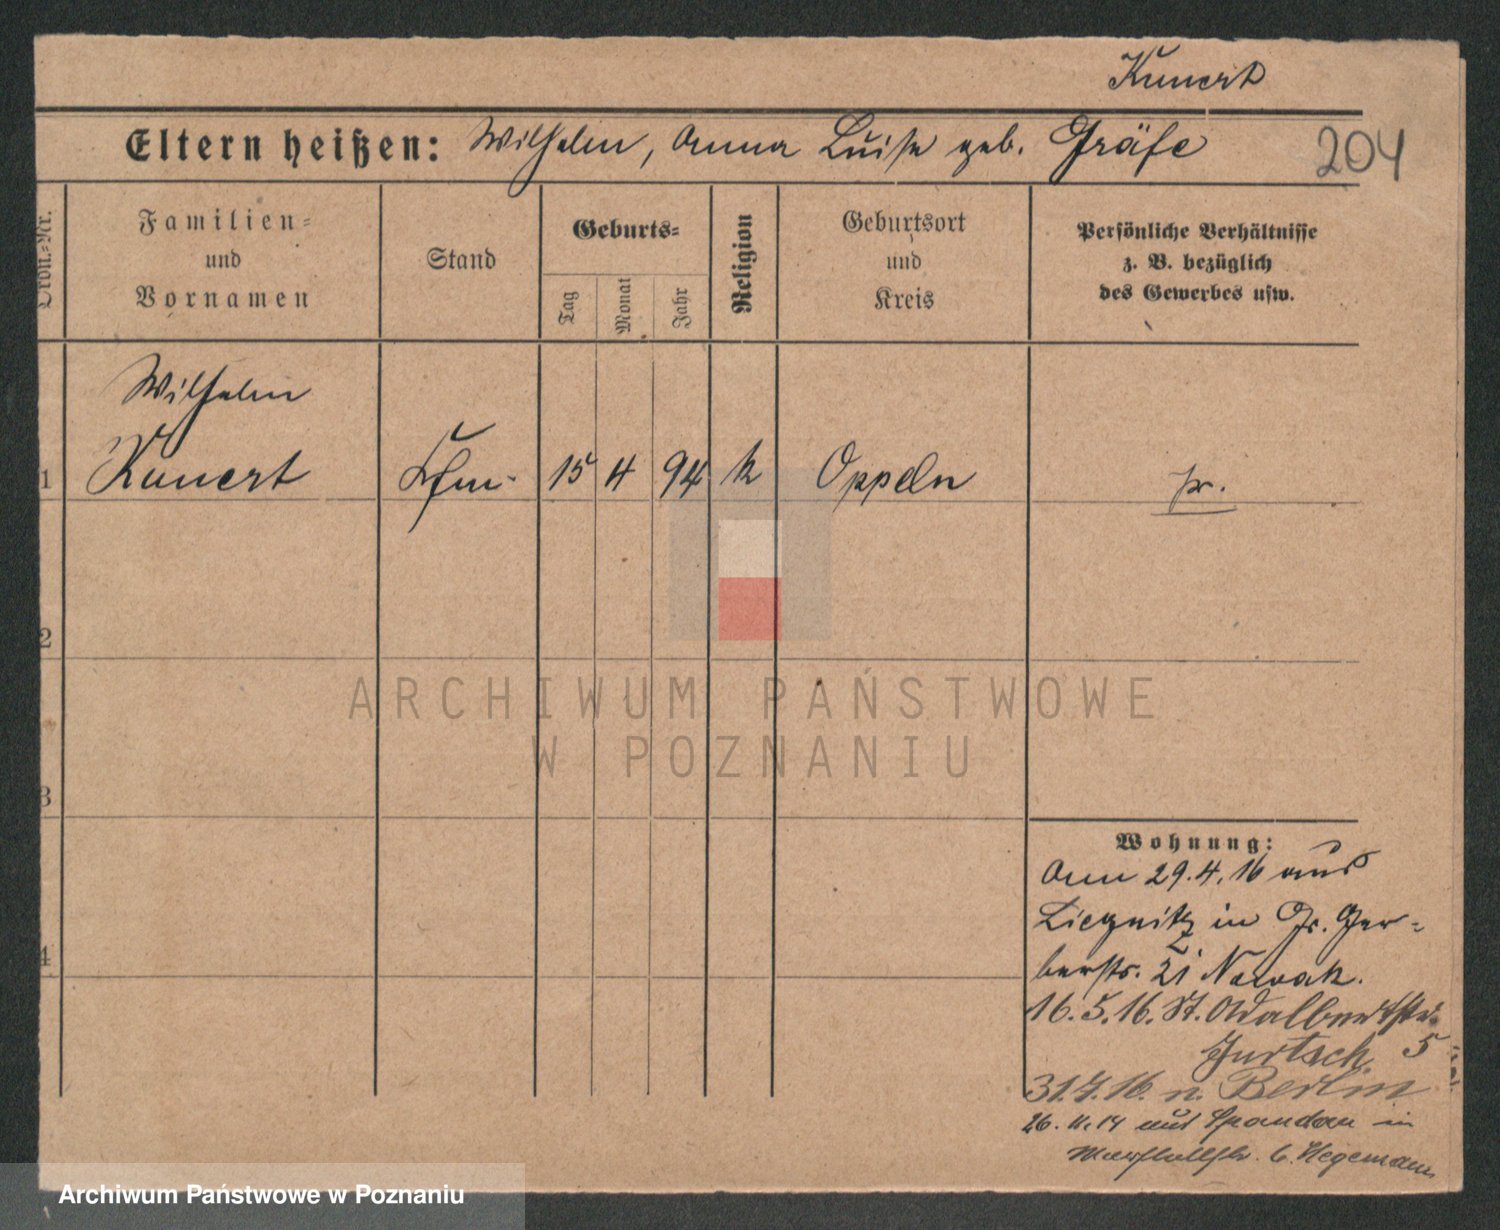 Kunert
Eltern heißen: Wilhelm, Anna Luise geb. Gräfe
204
Ordn.-Nr.
Familien-
und
Vornamen
Stand
Geburts-
Tag
Monat
Jahr
Religion
Geburtsort
und
Kreis
Persönliche Verhältnisse
z. B. bezüglich
des Gewerbes usw.
Wilhelm
1 Kunert Kfm. 15 4 94 k Oppeln pr.
2
3
4
ARCHIWUM PAŃSTWOWE
W POZNANIU
Wohnung:
Am 29.4.16 aus
Liegnitz in Gr. Ger-
berstr. 21 Nowak.
16.5.16. St. Adalbertstr.
5
31.7.16. n. Berlin
26. 14 aus Spandau in
b. Hegemann
Archiwum Państwowe w Poznaniu